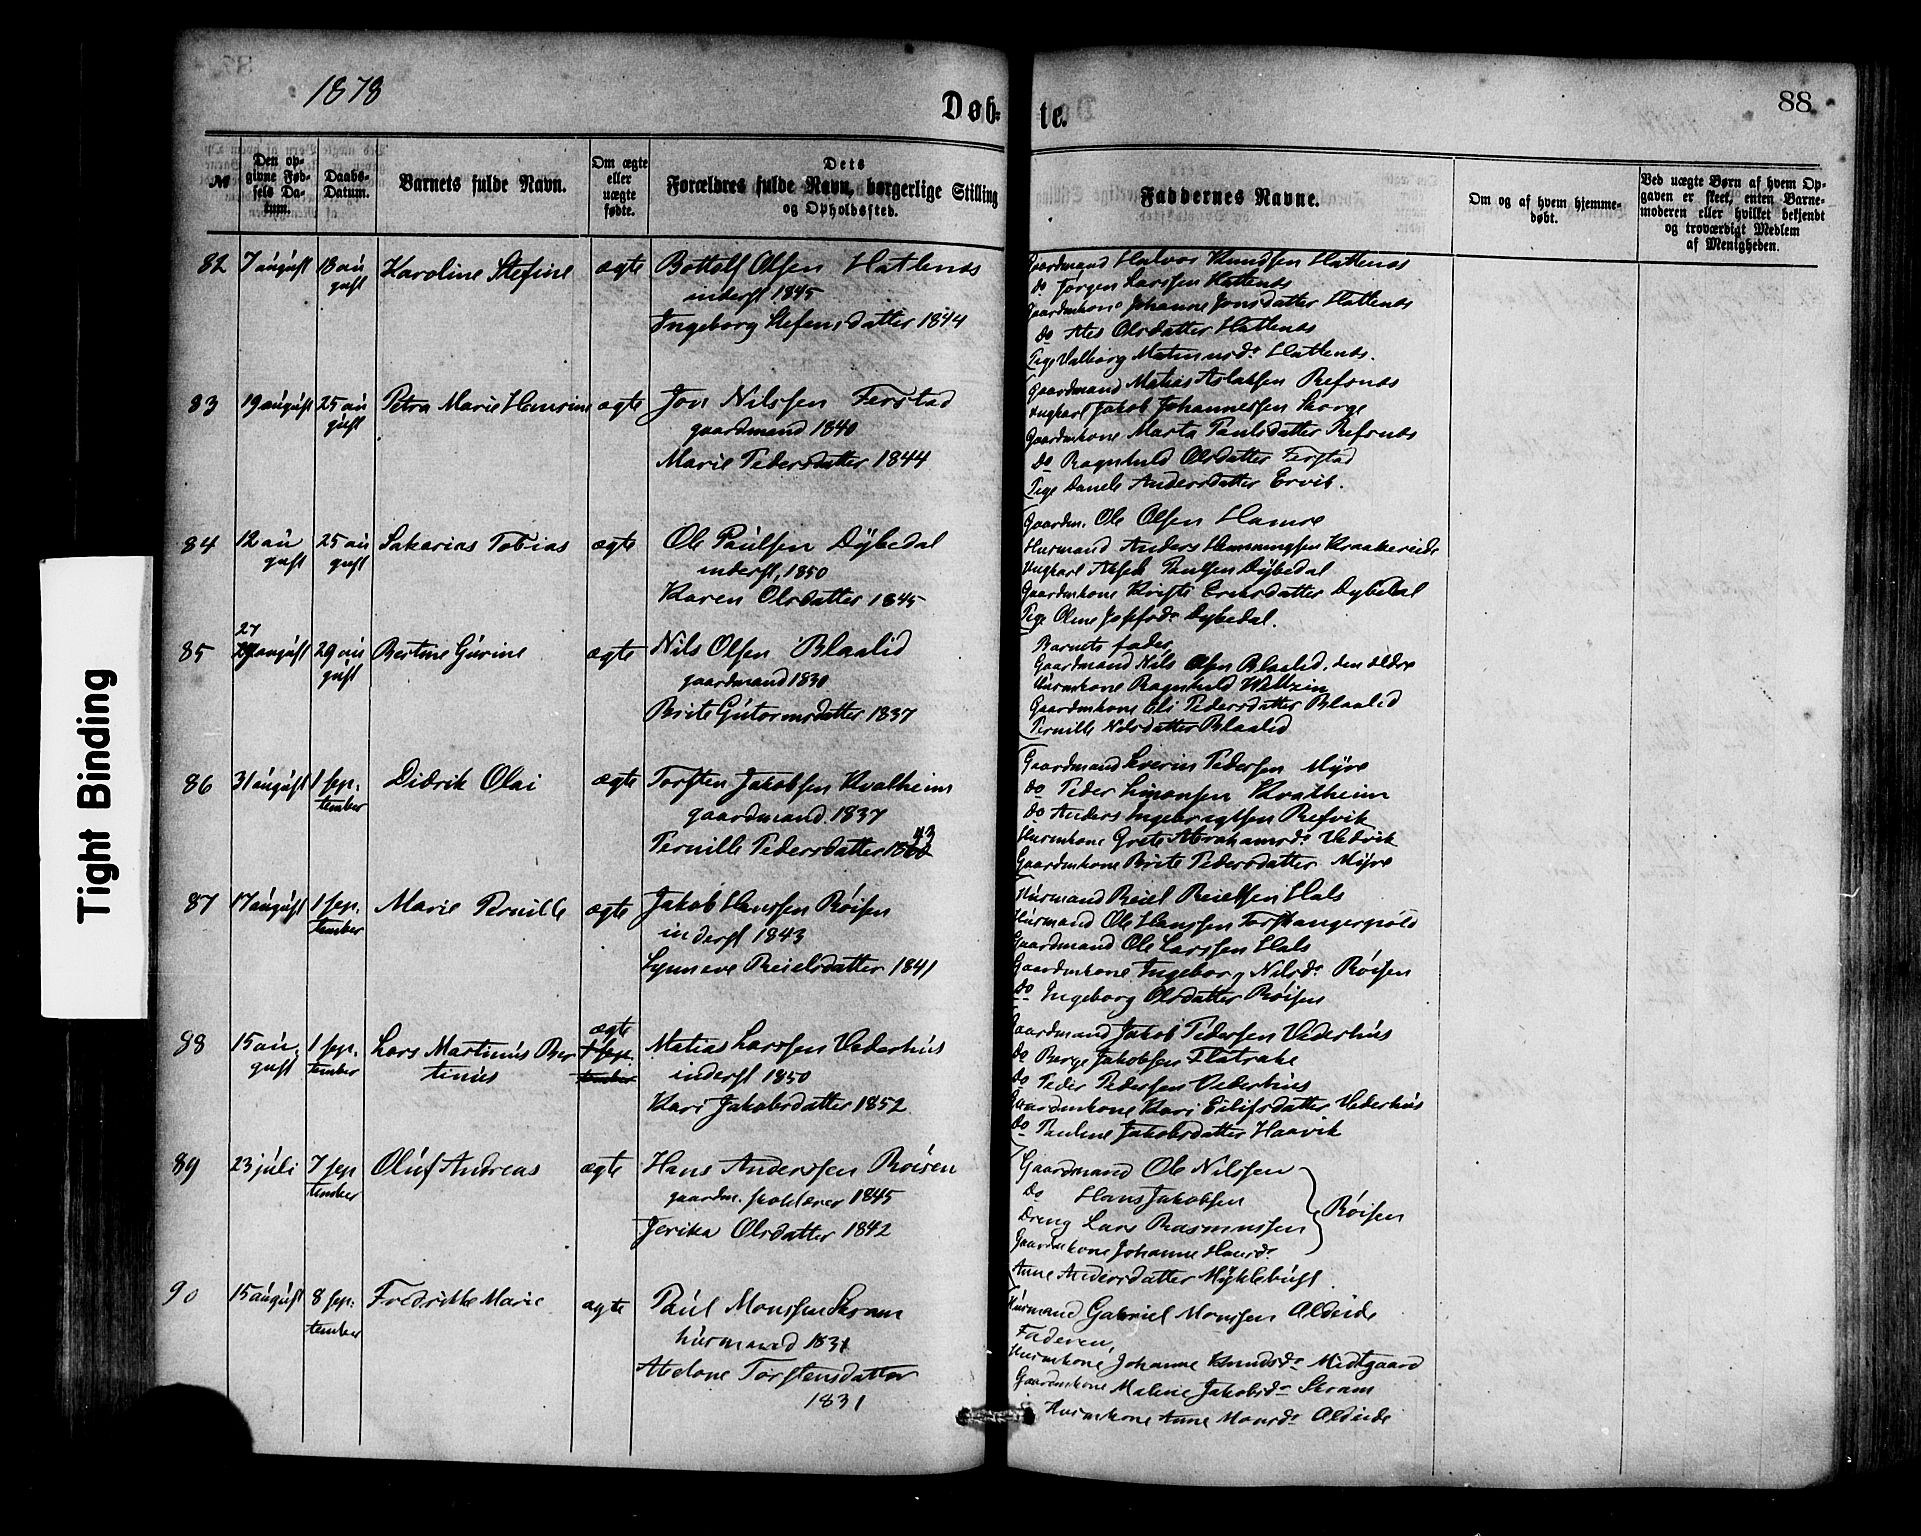 1878
Døb-
te.
88
Tight Binding
№
Den op-
givne Fød-
sels Da-
tum.
Daabs-
Datum.
Barnets fulde Navn.
Om ægte
eller
uægte
fødte.
Dets
Forældres fulde Navn, borgerlige Stilling
og Opholdssted.
Faddernes Navne.
Om og af hvem hjemme-
døbt.
Ved uægte Børn af hvem Op-
gaven er skeet, enten Barne-
moderen eller hvilket bekjendt
og troværdigt Medlem
af Menigheden.
82 7 august 18 au Karoline Stefine ægte Bottolf Olsen Hatlenæs
gust inderst 1845
Ingeborg Stefensdatter 1844
Gaardmand Halvor Knudsen Hatlenæs
do Jørgen Larssen Hatlenæs
Gaardmkone Johanne Jonsdatter Hatlenæs
do Olsdatter Hatlenæs
Pige Valborg Hatlenæs.
83 19 august 25 au Petra Marie Hansine ægte Jon Nilssen Ferstad
gust gaardmand 1840
Marie Pedersdatter 1844
Gaardmand Matias Aslaksen Refsnæs
Ungkarl Jakob Johannessen Skorge
Gaardmkone Marta Paulsdatter Refsnæs
do Ragnhild Olsdatter Ferstad
Pige Andersdatter Ervik.
84 12 au 25 au Sakarias Tobias ægte Ole Paulsen Dybedal
gust gust inderst, 1850
Karen Olsdatter 1845
Gaardm. Ole Olsen Hamre
Husmand Anders Hemmingsen Kraakereide
Ungkarl Paulsen Dybedal
Gaardmkone Kristi Eriksdatter Dybedal
Pige Oline Josefsdr Dybedal.
27
85 29 august 29 au Bertine Gurine ægte Nils Olsen Blaalid
gust gaardmand 1830
Brite Gutormsdatter 1837
Barnets fader
Gaardmand Nils Olsen Blaalid, den ældre
Husmkone Ragnhild Weltzin
Gaardmkone Eli Pedersdatter Blaalid
Pernille Nilsdatter Blaalid
86 31 august 1 sep. Didrik Olai ægte Torsten Jakobsen Kvalheim
tember gaardmand 1837
43
Pernille Pedersdatter 18
Gaardmand Severin Pedersen Myre
do Peder Simonsen Kvalheim
do Anders Ingebrigtsen Refvik
Husmkone Grete Abrahamsdr Vedvik
Gaardmkone Brite Pedersdatter Myre
87 17 august 1 sep. Marie Pernille ægte Jakob Hanssen Røisen
tember inderst 1843
Synneve Reielsdatter 1841
Husmand Reiel Reielsen Hals
Husmand Ole Hanssen Torskangerpold
Gaardmand Ole Larssen Hals
Gaardmkone Ingeborg Nilsdr Røisen
do Ingeborg Olsdatter Røisen
ægte
88 15 au 1 sep. Lars Martinus Ber 1 sep. Matias Larssen Vederhus
gust tember tinus tember inderst 1850
Kari Jakobsdatter 1852
Gaardmand Jakob Pedersen Vederhus
do Berge Jakobsen Flatrake
do Peder Pedersen Vederhus
Gaardmkone Kari Eilifsdatter Vederhus
do Pauline Jakobsdatter Haavik
89 23 juli 7 sep Oluf Andreas ægte Hans Anderssen Røisen
tember gaardm. 1845
Jerika Olsdatter 1842
Gaardmand Ole Nilssen
do Hans Jakobsen
Dreng Lars Rasmussen Røisen
Gaardmkone Johanne Hansdr
Anne Andersdatter Myklebust
90 15 august 8 sep. Fredrikke Marie ægte Paul Monssen Skram
tember husmand 1831
Abelone Torstensdatter
1831
Husmand Gabriel Monssen Aldeide
Faderen,
Husmkone Johanne Knudsdr Midtgaard
Gaardmkone Malene Jakobsdr Skram
Husmkone Anne Monsdr Aldeide